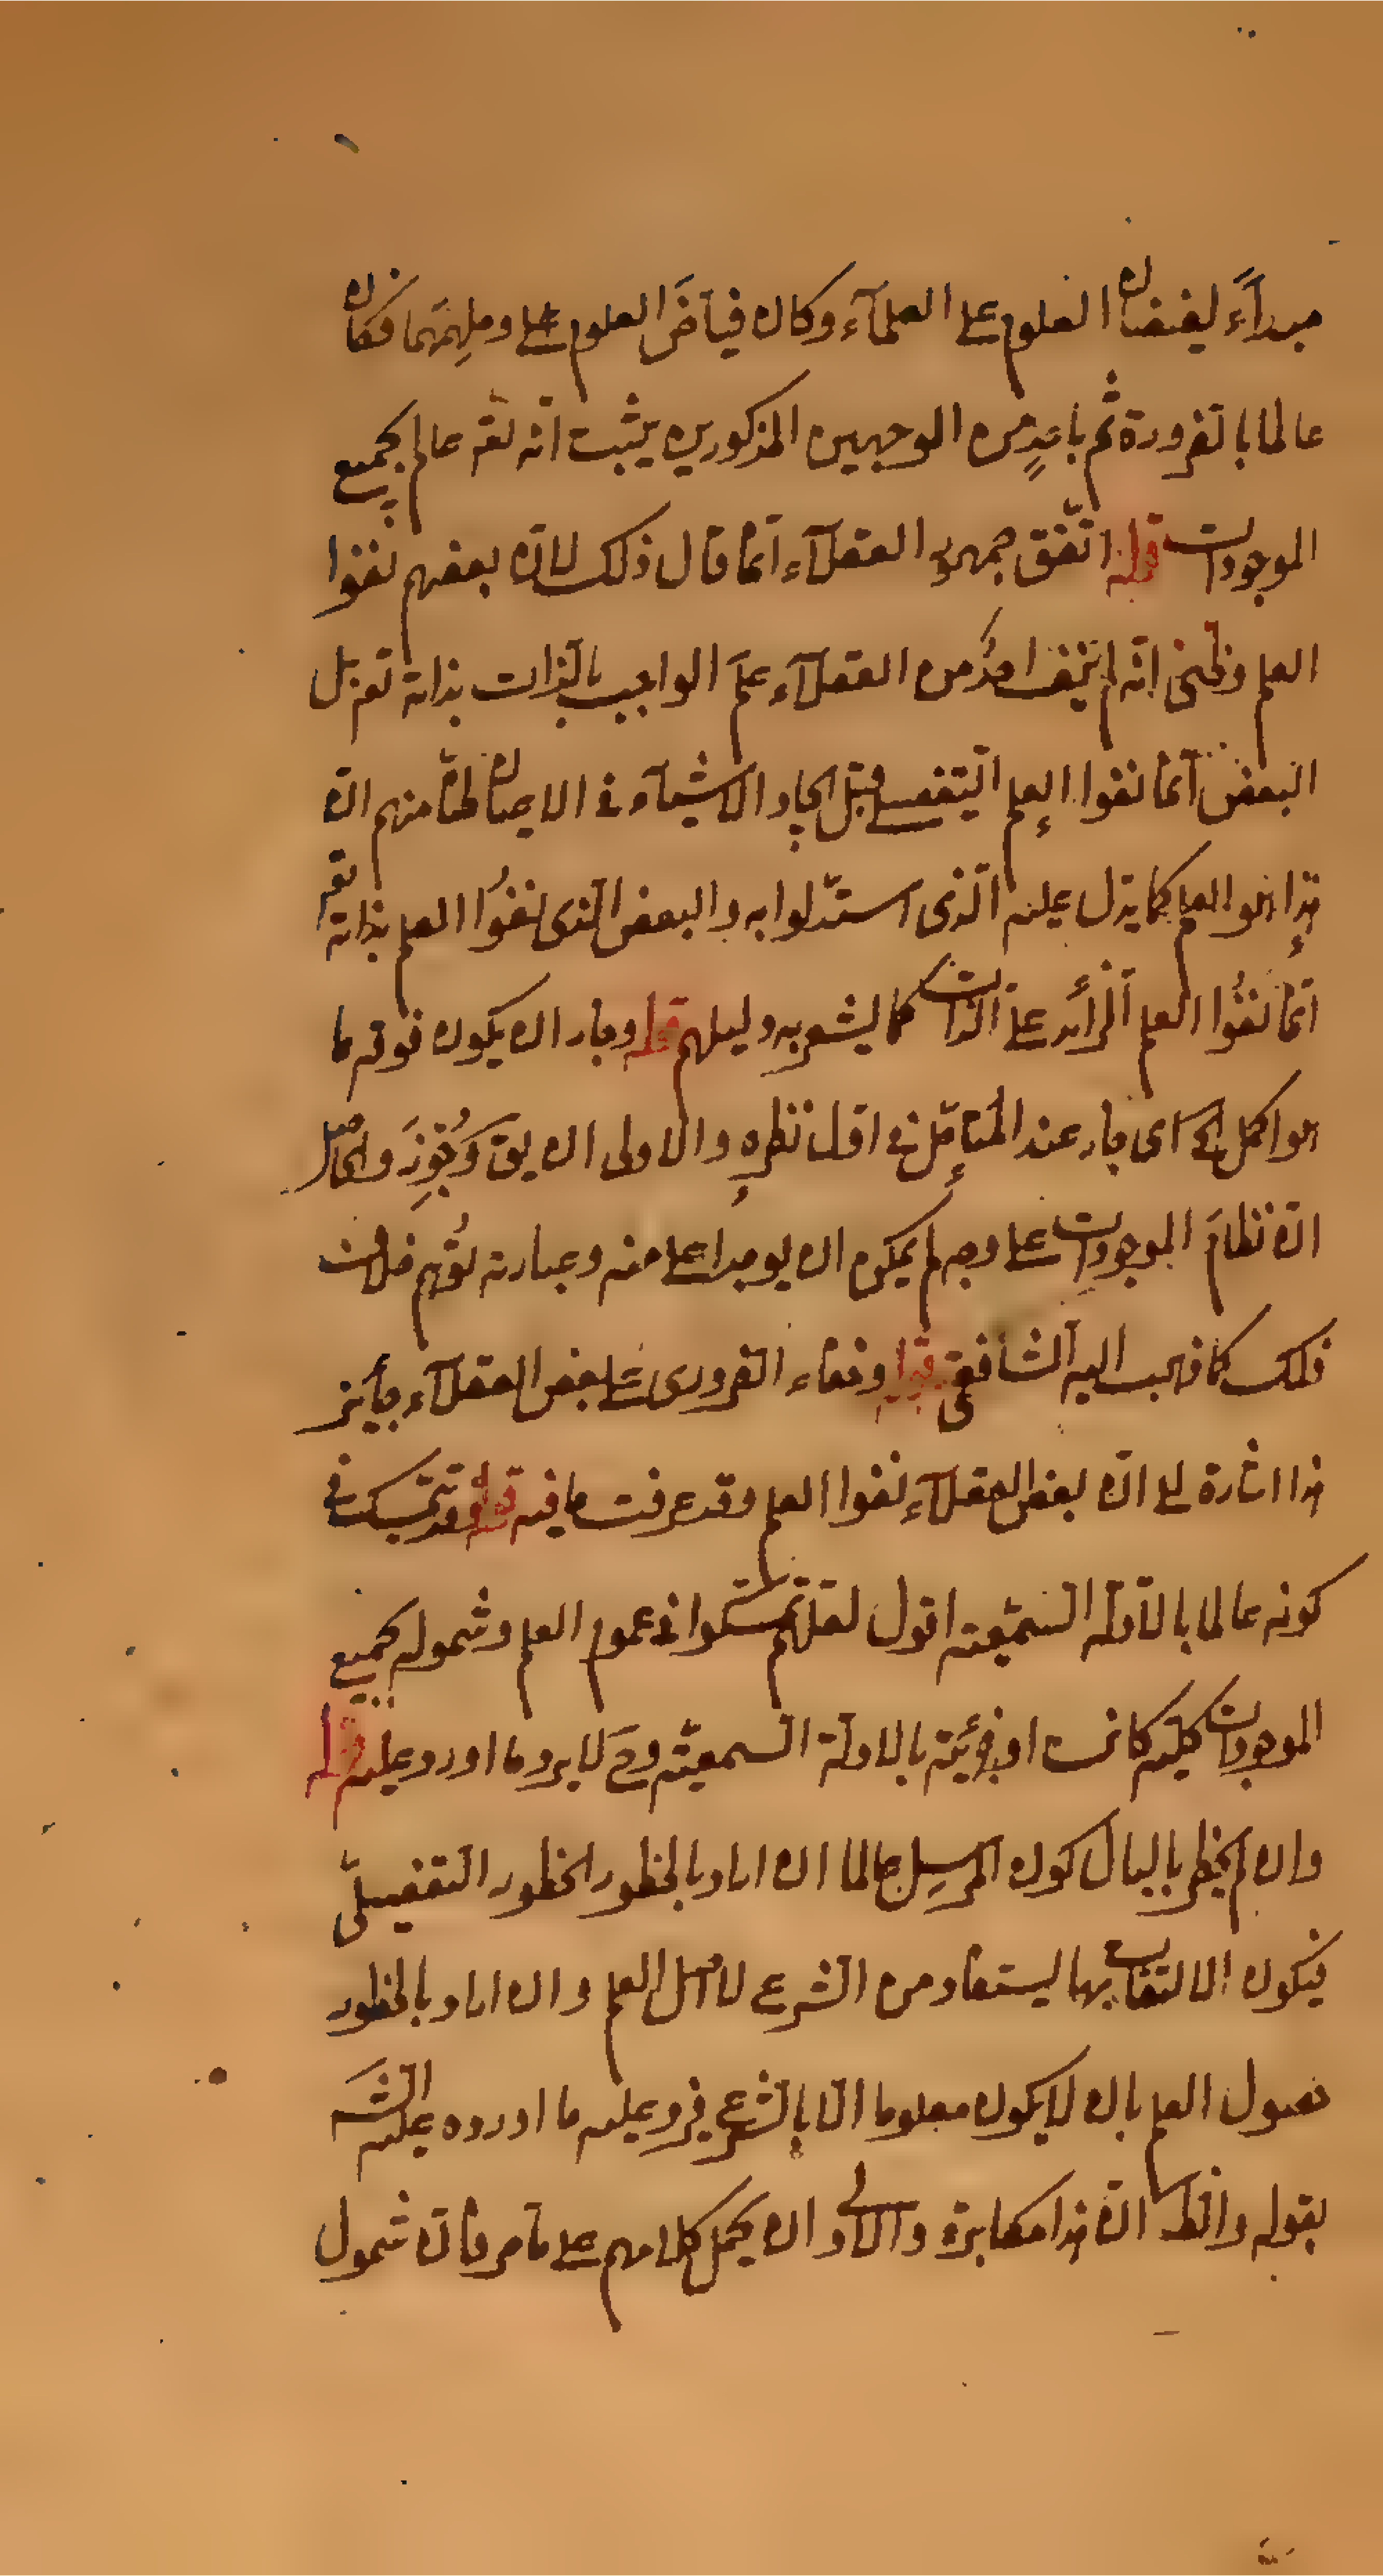 مبدأً لفيضان العلوم على العلمآء وكان فياضَ العلوم على وملهِمَها فكان
عالما بالضرورة ثم باحدٍ من الوجهين المذكورين يثبت انه تعـ عالم بجميع
الموجودات قوله اتّفق جمهور العقلآء انّما قال ذلك لانّ بعضهم نفوا
العلم وظنى انّه لم ينف احدٌ من العقلآء علمَ الواجب بالذات بذاته تعـ بل
البعض انّما نفوا العلم التفصيلى قبل ايجاد الاشيآء فى الاعيان ظنّا منهم انّ
هذا هو العلم كما يدل عليه الّذى استدّلوا به والبعض الّذى نفَوُا العلم بذاته تعـ
انّما نفَوُا العلم الزائد على الذات كما يشعر به دليلهم قوله وجاز ان يكون فوقه ما
هو اكمل الخ اى جاز عند المتأمّل فى اوّل نظرِهِ والاولى ان يقـ وَجُوِّزَ والحاصل
انّ نظامَ الموجودات على وجه لم يمكن ان يوجد اعلى منه وعبارته تُوهم خلاف
ذلك كما ذهب اليه الشافعى قوله وخفاء الضرورى على بعض العقلآء جائز
هذا اشارة الى انّ بعض العقلآء نفوا العلم وقد عرفت ما فيه قوله وقد يتمسّك فى
كونه عالما بالادلّة السّمعيّة اقول لعلّهم تمسّكوا فى عموم العلم وشموله بجميع
الموجودات كليّة كانت او جزئيّة بالادلّة السمعيّة وحَ لا يرد ما اورد عليه قوله
وان لم يخطر بالبال كون المرسِل عالما ان اراد بالخطور الخطور التفصيلىّ
فيكون الالتفات بها يستفاد من الشرع لا اصل العلم وان اراد بالخطور
حصول العلم بان لا يكون معلوما الّا بالشرع فيرد عليه ما اورده عليه الشـ
بقوله والظـ انّ هذا مكابرة والاولى ان يحمل كلامهم على ما مرّ فانّ شمول